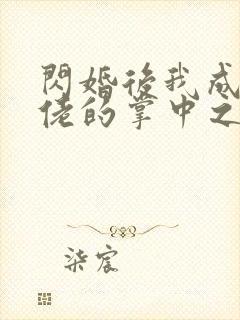 閃婚後我成
佬的掌中之
柒宸